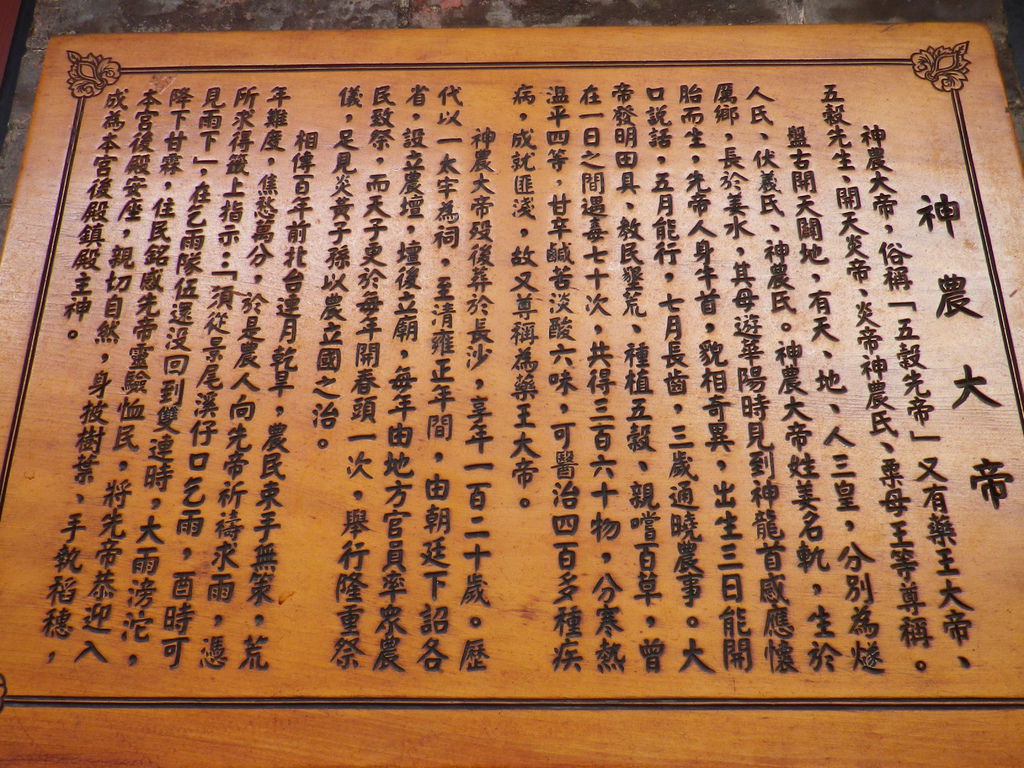 神農大帝
神農大帝，俗稱「五穀先帝」又有藥王大帝、
五穀先生、開天炎帝、炎帝神農氏、粟母王等尊稱。
盤古開天闢地，有天、地、人三皇，分別為燧
人氏、伏羲氏、神農氏。神農大帝姓姜名軌，生於
厲鄉，長於姜水，其母遊華陽時見到神龍首感應懷
胎而生，先帝人身牛首，貌相奇異，出生三日能開
口說話，五月能行，七月長齒，三歲通曉農事。大
帝發明田具、教民墾荒、種植五穀、親嚐百草，曾
在一日之間遇毒七十次，共得三百六十物，分寒熱
溫平四等，甘辛鹹苦淡酸六味，可醫治四百多種疾
病，成就匪淺，故又尊稱為藥王大帝。
神農大帝歿後葬於長沙，享年一百二十歲。歷
代以一太牢為祠，至清雍正年間，由朝廷下詔各
省，設立農壇，壇後立廟，每年由地方官員率眾農
民致祭，而天子更於每年開春頭一次，舉行隆重祭
儀，足見炎黃子孫以農立國之治。
相傳百年前北台連月乾旱，農民束手無策，荒
年難度，焦愁萬分，於是農人向先帝祈禱求雨，憑
所求得籤上指示：「須從景尾溪仔口乞雨，酉時可
見雨下」，在乞雨隊伍還沒回到雙連時，大雨滂沱，
降下甘霖，住民銘感先帝靈驗恤民，將先帝恭迎入
本宮後殿安座，親切自然，身披樹葉、手執稻穗，
成為本宮後殿鎮殿主神。